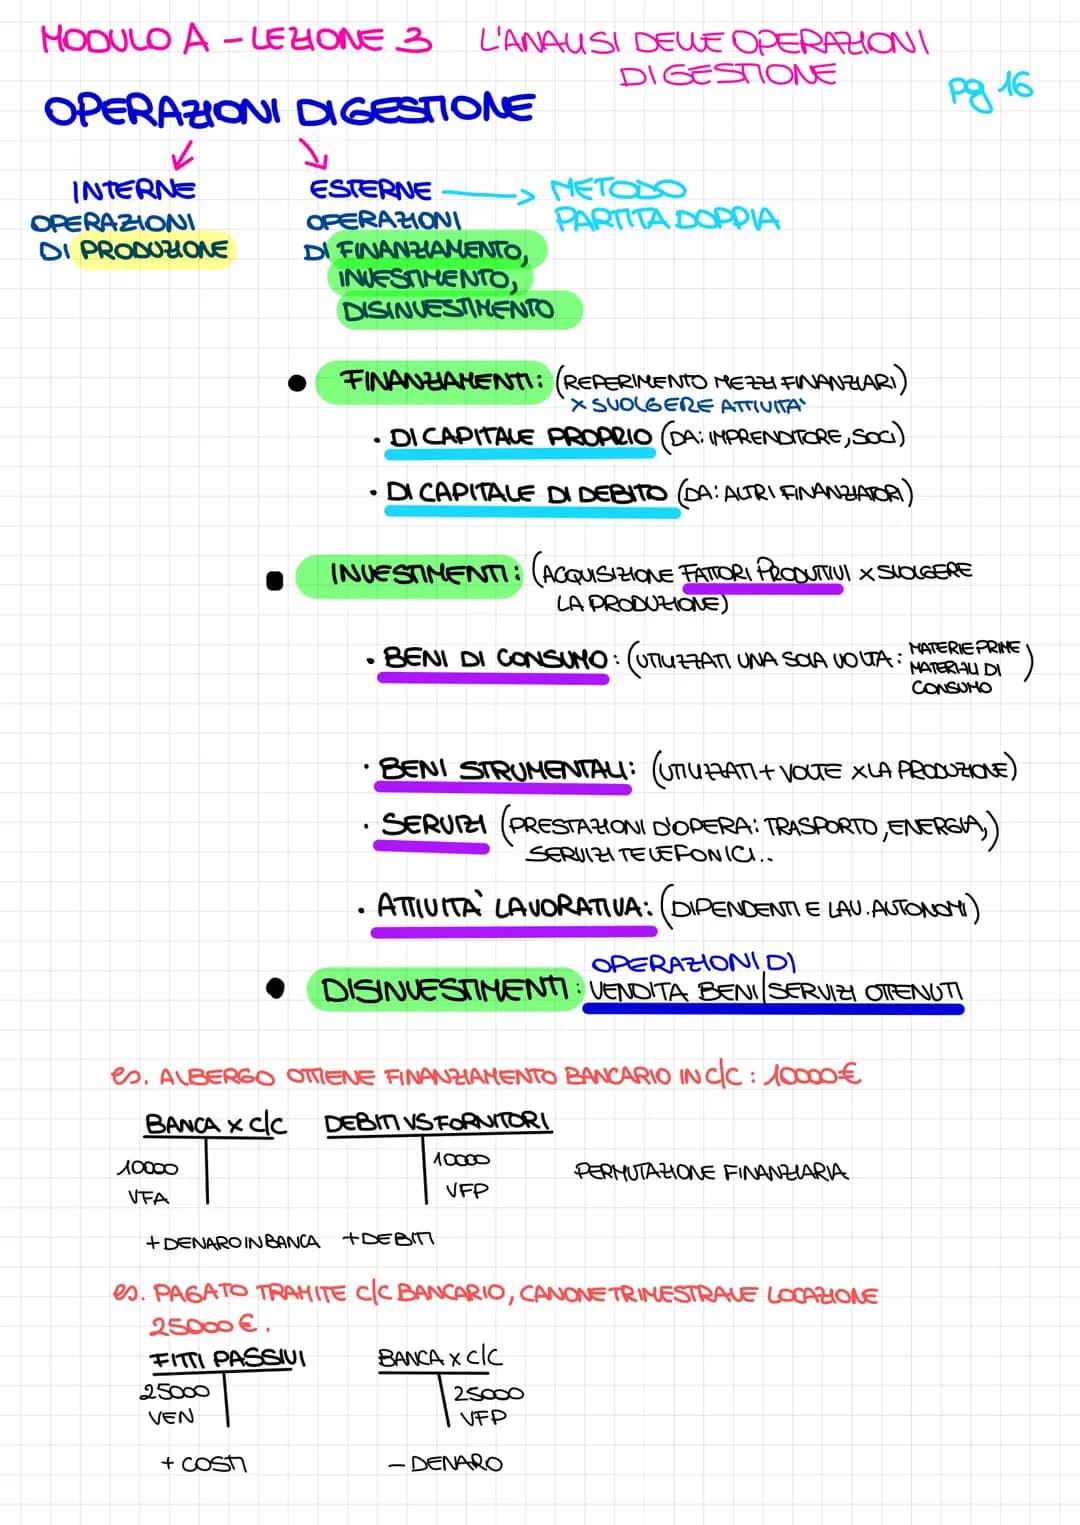 MODULO A - LEZIONE 3 L'ANALISI DELLE OPERAZIONI
DI GESTIONE
pg 16
OPERAZIONI DI GESTIONE
INTERNE
OPERAZIONI
DI PRODUZIONE
ESTERNE
OPERAZIONI
DI FINANZIAMENTO,
INVESTIMENTO,
DISINVESTIMENTO
METODO
PARTITA DOPPIA
FINANZIAMENTI: (REPERIMENTO MEZZI FINANZIARI)
X SVOLGERE ATTIVITA'
• DI CAPITALE PROPRIO (DA: IMPRENDITORE, SOCI)
• DI CAPITALE DI DEBITO (DA: ALTRI FINANZIATORI)
INVESTIMENTI: (ACQUISIZIONE FATTORI PRODUTTIVI X SVOLGERE
LA PRODUZIONE)
• BENI DI CONSUMO: (UTILIZZATI UNA SOLA VOLTA: MATERIE PRIME
MATERIALI DI
CONSUMO)
• BENI STRUMENTALI: (UTILIZZATI + VOLTE X LA PRODUZIONE)
• SERVIZI (PRESTAZIONI D'OPERA: TRASPORTO, ENERGIA,)
SERVIZI TELEFONICI..
• ATTIVITÀ LAVORATIVA: (DIPENDENTI E LAV. AUTONOMI)
OPERAZIONI DI
DISINVESTIMENTI: VENDITA BENI/SERVIZI OTTENUTI
es. ALBERGO OTTIENE FINANZIAMENTO BANCARIO IN C/C: 10000€
BANCA X C/C DEBITI VS FORNITORI
10000
VFA
10000
VFP
PERMUTAZIONE FINANZIARIA
+ DENARO IN BANCA + DEBITI
es. PAGATO TRAMITE C/C BANCARIO, CANONE TRIMESTRALE LOCAZIONE
25000 €.
FITTI PASSIVI BANCA X C/C
25000
VEN
25000
VFP
+ COSTI - DENARO